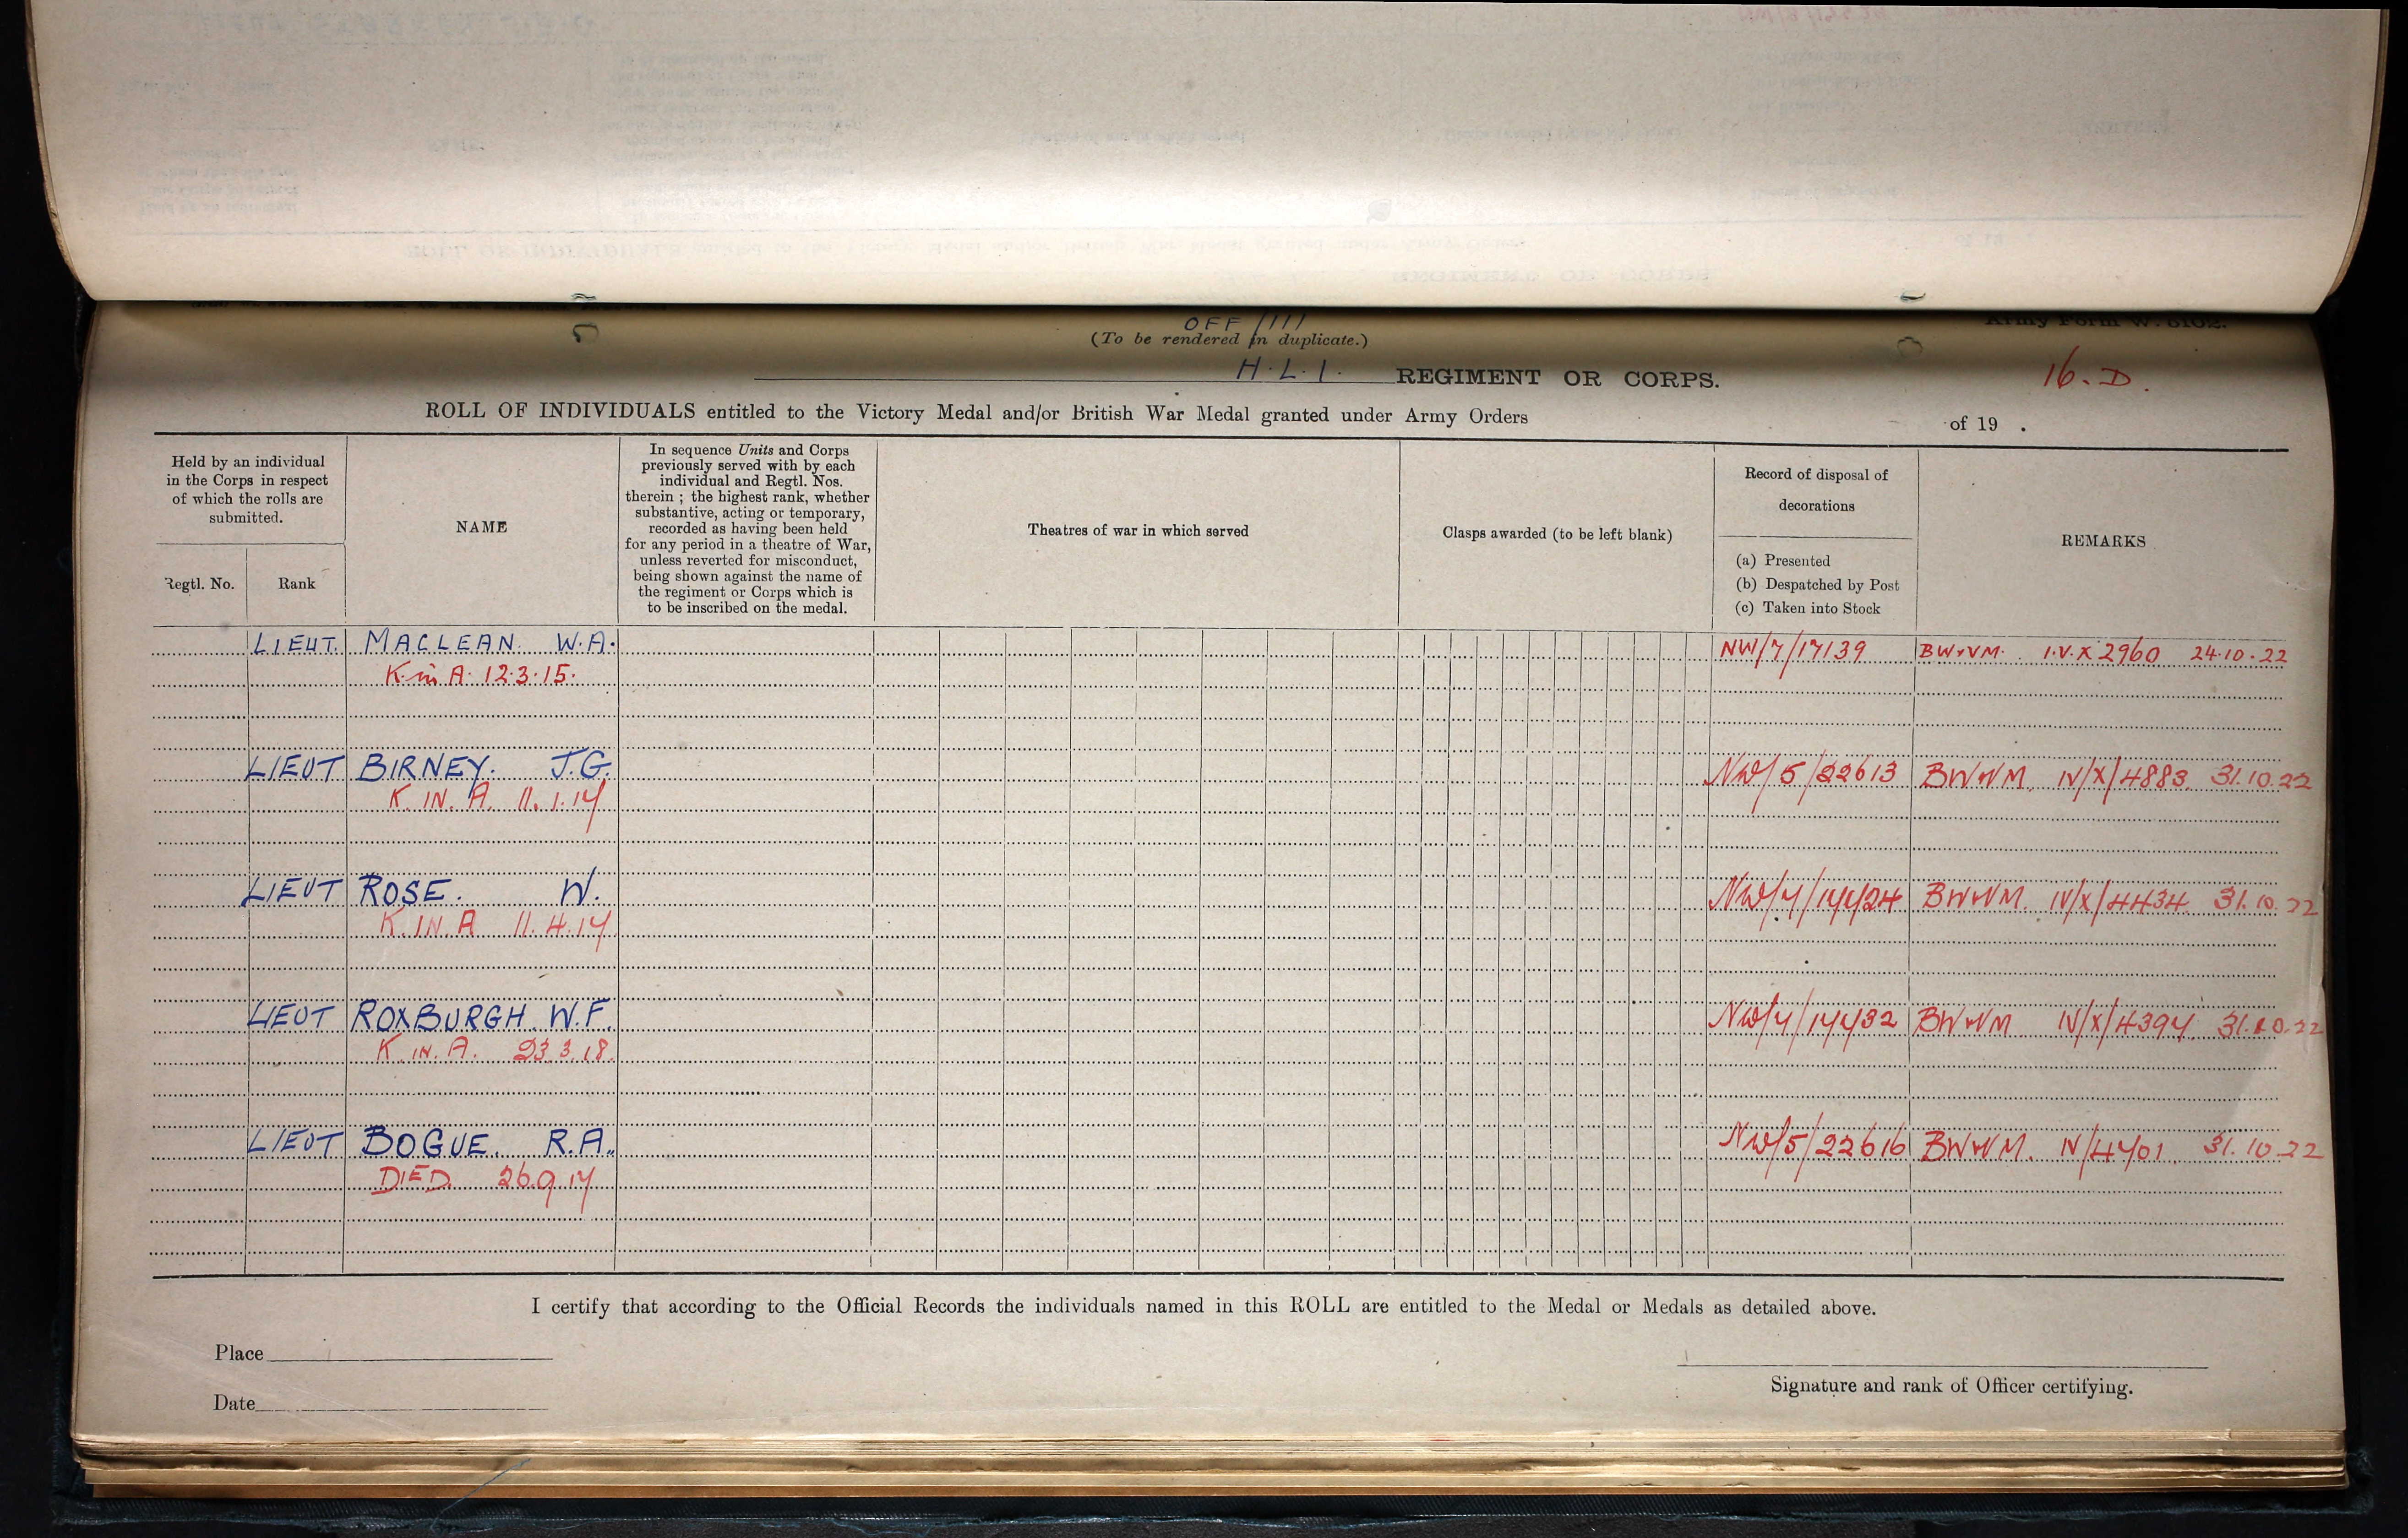 OFF/111
(To be rendered in duplicate.)
Army Form W. 5102.
H.L.I. REGIMENT OR CORPS.
16.D.
ROLL OF INDIVIDUALS entitled to the Victory Medal and/or British War Medal granted under Army Orders of 19 .
Held by an individual
in the Corps in respect
of which the rolls are
submitted.
Regtl. No.
Rank
NAME
In sequence Units and Corps
previously served with by each
individual and Regtl. Nos.
therein ; the highest rank, whether
substantive, acting or temporary,
recorded as having been held
for any period in a theatre of War,
unless reverted for misconduct,
being shown against the name of
the regiment or Corps which is
to be inscribed on the medal.
Theatres of war in which served
Clasps awarded (to be left blank)
Record of disposal of
decorations
(a) Presented
(b) Despatched by Post
(c) Taken into Stock
REMARKS
LIEUT. MACLEAN. W.A. NW/7/17139 BW&VM. I.V.X 2960 24.10.22
K. in A. 12.3.15.
LIEUT BIRNEY. J.G. NW/5/22613 BW&VM. IV/X/4883. 31.10.22
K. IN. A. 11.1.17
LIEUT ROSE. W. NW/7/17724 BW&VM. IV/X/4434. 31.10.22
K. IN. A 11.4.17
LIEUT ROXBURGH. W.F. NW/7/17732 BW&VM IV/X/4397. 31.10.22
K. IN. A. 23.3.18.
LIEUT BOGUE. R.A. NW/5/22616 BW&VM. IV/4701. 31.10.22
DIED. 26.9.17
I certify that according to the Official Records the individuals named in this ROLL are entitled to the Medal or Medals as detailed above.
Place
Date
Signature and rank of Officer certifying.